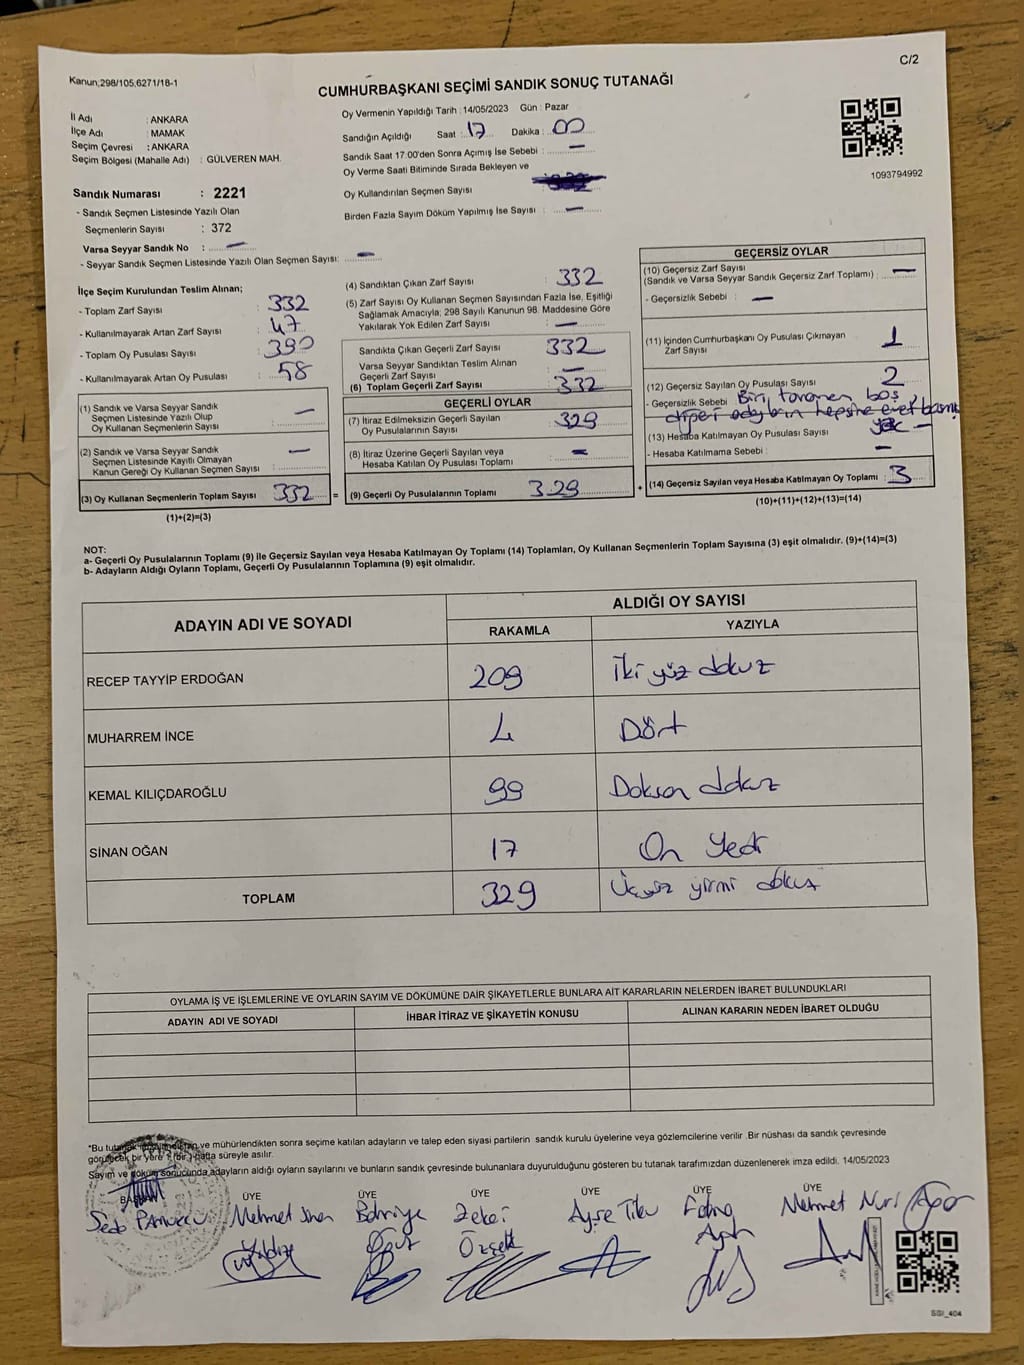 C/2
Kanun;298/105;6271/18-1
CUMHURBAŞKANI SEÇİMİ SANDIK SONUÇ TUTANAĞI
İl Adı : ANKARA
İlçe Adı : MAMAK
Seçim Çevresi : ANKARA
Seçim Bölgesi (Mahalle Adı) : GÜLVEREN MAH.
Sandık Numarası : 2221
- Sandık Seçmen Listesinde Yazılı Olan
Seçmenlerin Sayısı : 372
Varsa Seyyar Sandık No : —
- Seyyar Sandık Seçmen Listesinde Yazılı Olan Seçmen Sayısı: —
Oy Vermenin Yapıldığı Tarih : 14/05/2023 Gün : Pazar
Sandığın Açıldığı Saat : 17 Dakika : 00
Sandık Saat 17:00'den Sonra Açımış İse Sebebi : —
Oy Verme Saati Bitiminde Sırada Bekleyen ve
Oy Kullandırılan Seçmen Sayısı
Birden Fazla Sayım Döküm Yapılmış İse Sayısı : —
1093794992
İlçe Seçim Kurulundan Teslim Alınan;
- Toplam Zarf Sayısı : 332
- Kullanılmayarak Artan Zarf Sayısı : 47
- Toplam Oy Pusulası Sayısı : 390
- Kullanılmayarak Artan Oy Pusulası : 58
(1) Sandık ve Varsa Seyyar Sandık
Seçmen Listesinde Yazılı Olup
Oy Kullanan Seçmenlerin Sayısı : —
(2) Sandık ve Varsa Seyyar Sandık
Seçmen Listesinde Kayıtlı Olmayan
Kanun Gereği Oy Kullanan Seçmen Sayısı : —
(3) Oy Kullanan Seçmenlerin Toplam Sayısı : 332 =
(1)+(2)=(3)
(4) Sandıktan Çıkan Zarf Sayısı : 332
(5) Zarf Sayısı Oy Kullanan Seçmen Sayısından Fazla İse, Eşitliği
Sağlamak Amacıyla; 298 Sayılı Kanunun 98. Maddesine Göre
Yakılarak Yok Edilen Zarf Sayısı : —
Sandıkta Çıkan Geçerli Zarf Sayısı : 332
Varsa Seyyar Sandıktan Teslim Alınan
Geçerli Zarf Sayısı : —
(6) Toplam Geçerli Zarf Sayısı : 332
GEÇERLİ OYLAR
(7) İtiraz Edilmeksizin Geçerli Sayılan
Oy Pusulalarının Sayısı : 329
(8) İtiraz Üzerine Geçerli Sayılan veya
Hesaba Katılan Oy Pusulası Toplamı : —
(9) Geçerli Oy Pusulalarının Toplamı : 329 +
GEÇERSİZ OYLAR
(10) Geçersiz Zarf Sayısı
(Sandık ve Varsa Seyyar Sandık Geçersiz Zarf Toplamı) : —
- Geçersizlik Sebebi : —
(11) İçinden Cumhurbaşkanı Oy Pusulası Çıkmayan
Zarf Sayısı : 1
(12) Geçersiz Sayılan Oy Pusulası Sayısı : 2
- Geçersizlik Sebebi : Biri tamamen boş,
diğeri adayların hepsine evet basmış
(13) Hesaba Katılmayan Oy Pusulası Sayısı : yok —
- Hesaba Katılmama Sebebi : —
(14) Geçersiz Sayılan veya Hesaba Katılmayan Oy Toplamı : 3
(10)+(11)+(12)+(13)=(14)
NOT:
a- Geçerli Oy Pusulalarının Toplamı (9) ile Geçersiz Sayılan veya Hesaba Katılmayan Oy Toplamı (14) Toplamları, Oy Kullanan Seçmenlerin Toplam Sayısına (3) eşit olmalıdır. (9)+(14)=(3)
b- Adayların Aldığı Oyların Toplamı, Geçerli Oy Pusulalarının Toplamına (9) eşit olmalıdır.
ADAYIN ADI VE SOYADI
ALDIĞI OY SAYISI
RAKAMLA YAZIYLA
RECEP TAYYİP ERDOĞAN 209 İki yüz dokuz
MUHARREM İNCE 4 Dört
KEMAL KILIÇDAROĞLU 99 Doksan dokuz
SİNAN OĞAN 17 On Yedi
TOPLAM 329 Üçyüz yirmi dokuz
OYLAMA İŞ VE İŞLEMLERİNE VE OYLARIN SAYIM VE DÖKÜMÜNE DAİR ŞİKAYETLERLE BUNLARA AİT KARARLARIN NELERDEN İBARET BULUNDUKLARI
ADAYIN ADI VE SOYADI İHBAR İTİRAZ VE ŞİKAYETİN KONUSU ALINAN KARARIN NEDEN İBARET OLDUĞU
ve mühürlendikten sonra seçime katılan adayların ve talep eden siyasi partilerin sandık kurulu üyelerine veya gözlemcilerine verilir .Bir nüshası da sandık çevresinde
görülecek bir yere 1 (bir ) hafta süreyle asılır.
Sayım ve döküm sonucunda adayların aldığı oyların sayılarını ve bunların sandık çevresinde bulunanlara duyurulduğunu gösteren bu tutanak tarafımızdan düzenlenerek imza edildi. 14/05/2023
BAŞKAN ÜYE ÜYE ÜYE ÜYE ÜYE ÜYE
Seda PAMUKCU Mehmet Sinan Bahriye Zekai Ayşe Fatma Mehmet Nuri
Yıldız Oğuz
SGI_404